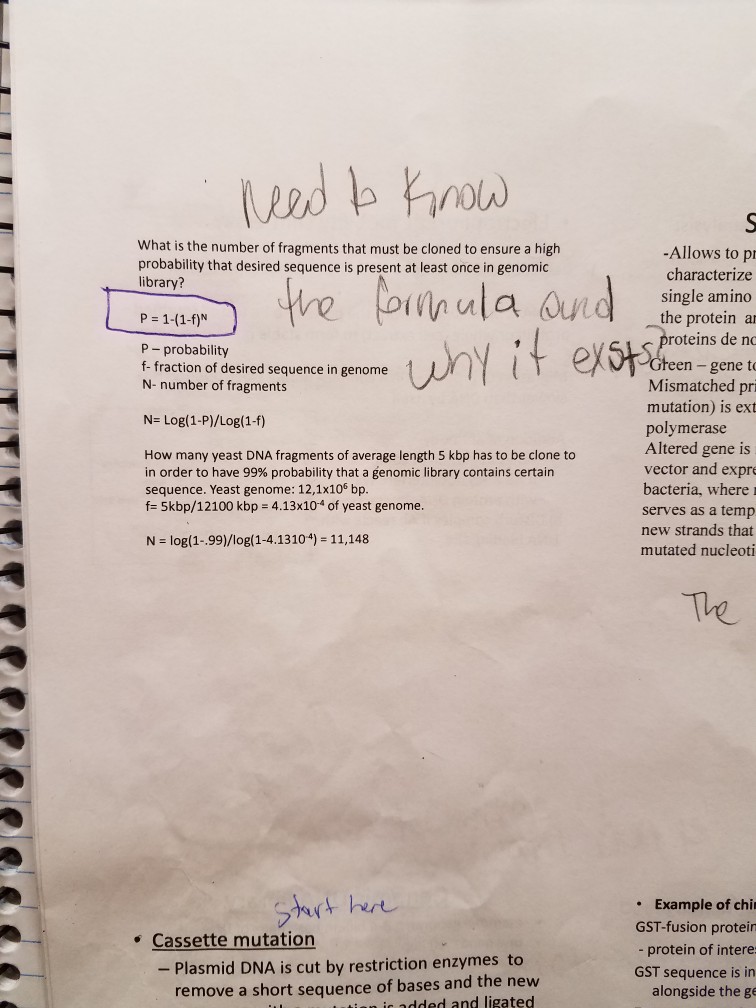 Need to Know
What is the number of fragments that must be cloned to ensure a high
probability that desired sequence is present at least once in genomic
library?
the formula and
P = 1-(1-f)ᴺ
why it exsts?
P – probability
f- fraction of desired sequence in genome
N- number of fragments
N= Log(1-P)/Log(1-f)
How many yeast DNA fragments of average length 5 kbp has to be clone to
in order to have 99% probability that a genomic library contains certain
sequence. Yeast genome: 12,1x10⁶ bp.
f= 5kbp/12100 kbp = 4.13x10⁻⁴ of yeast genome.
N = log(1-.99)/log(1-4.1310⁻⁴) = 11,148
start here
• Cassette mutation
– Plasmid DNA is cut by restriction enzymes to
remove a short sequence of bases and the new
mutation is added and ligated
S
-Allows to pr
characterize
single amino
the protein ar
proteins de no
Green – gene to
Mismatched pri
mutation) is ext
polymerase
Altered gene is
vector and expre
bacteria, where
serves as a temp
new strands that
mutated nucleoti
The
• Example of chi
GST-fusion protein
- protein of intere
GST sequence is in
alongside the ge